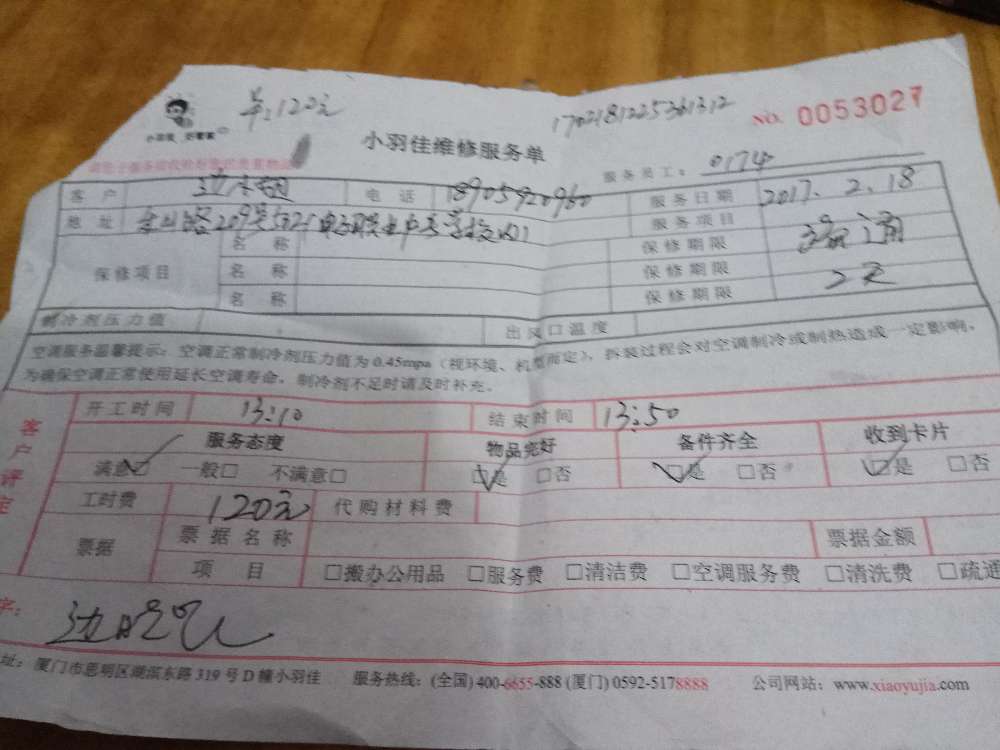 单:120元
170218122536312
NO. 0053027
小羽佳维修服务单
服务员工: 0174
客户 电话 18905920960 服务日期 2017.2.18
地址 209号 电子职业中专学校内 服务项目 疏通
保修项目 名称 保修期限
名称 保修期限 2天
名称 保修期限
制冷剂压力值 出风口温度
空调服务温馨提示:空调正常制冷剂压力值为0.45mpa(视环境、机型而定),拆装过程会对空调制冷或制热造成一定影响,
为确保空调正常使用延长空调寿命,制冷剂不足时请及时补充。
客户评定
开工时间 13:10 结束时间 13:50
服务态度 物品完好 备件齐全 收到卡片
满意☑ 一般□ 不满意□ ☑是 □否 ☑是 □否 ☑是 □否
工时费 120元 代购材料费
票据 票据名称 票据金额
项目 □搬办公用品 □服务费 □清洁费 □空调服务费 □清洗费 □疏通
字:
址:厦门市思明区湖滨东路319号D幢小羽佳 服务热线:(全国)400-6655-888(厦门)0592-5178888 公司网站:www.xiaoyujia.com